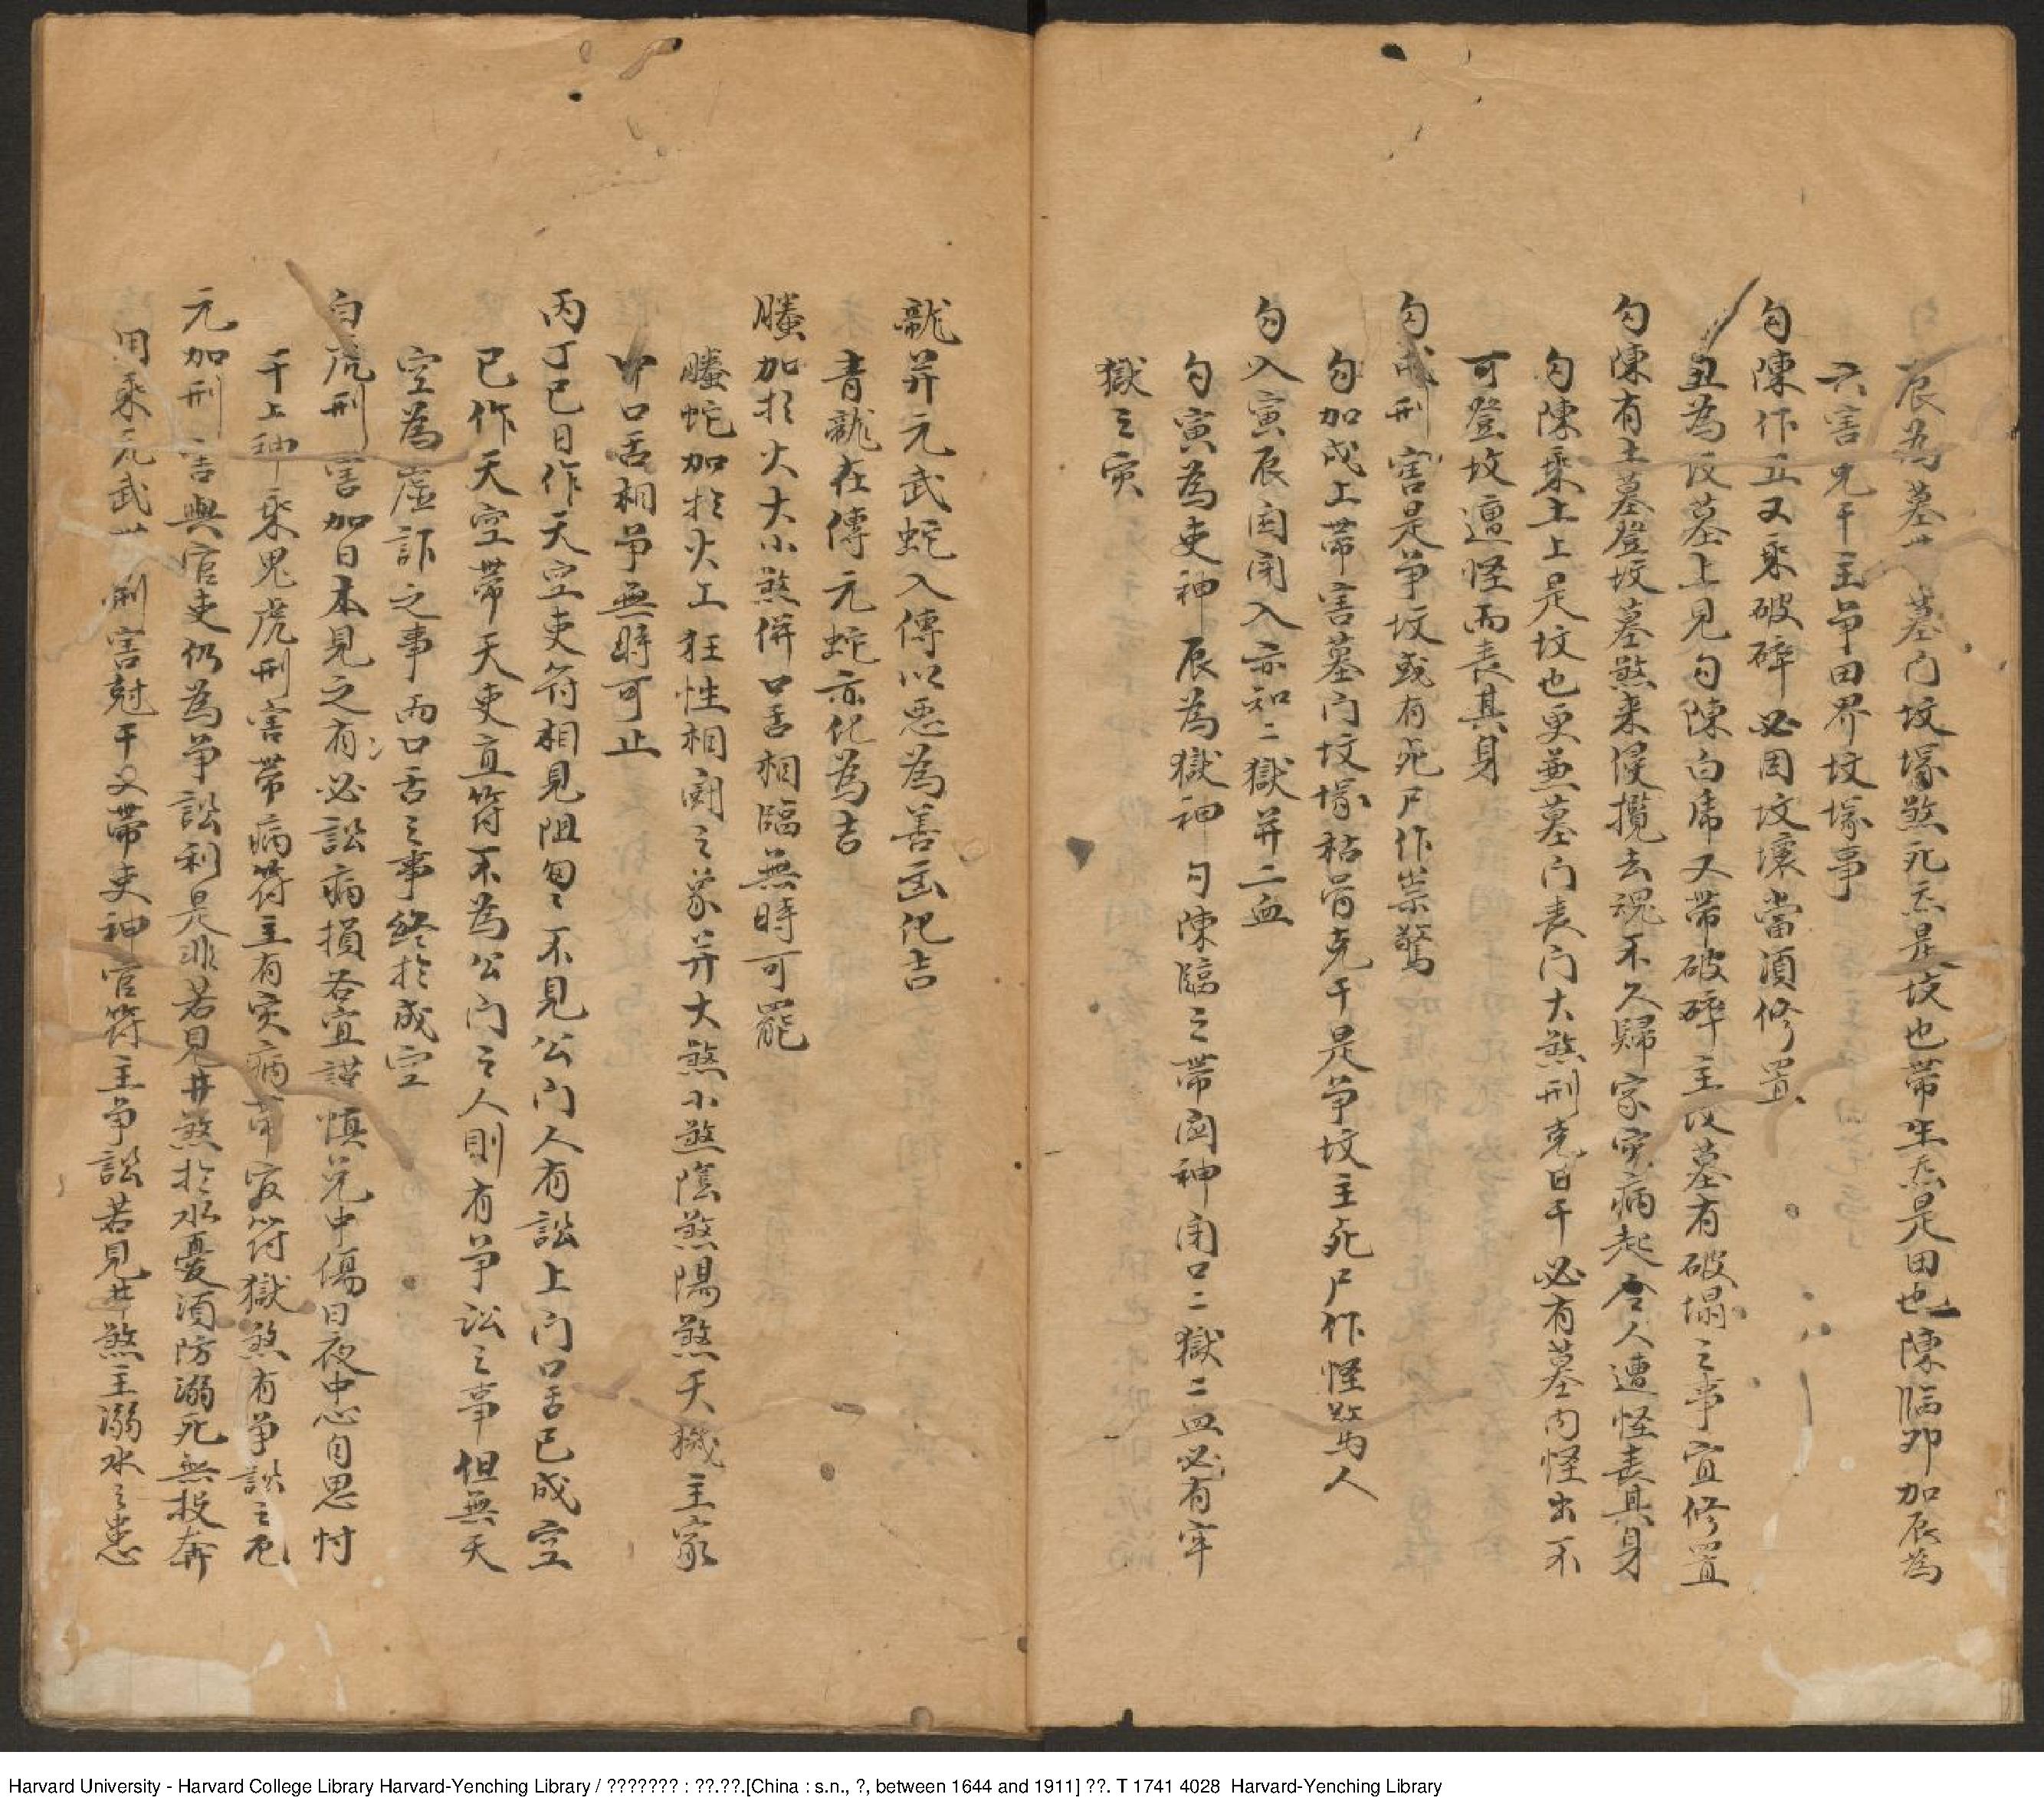 辰為墓　墓门坟塚煞死炁是坟也帶生炁是田也陳临卯加辰為
六害兄干主爭田界坟塚事
勾陳作丑又乘破碎必因坟壞當湏修置
丑為坟墓上見勾陳白虎又帶破碎主坟墓有破塌之事宜修置
勾陳有土墓登坟墓煞来侵攪去魂不久歸家灾病起令人遭怪丧其身
勾陳乘土上是坟也更兼墓门丧门大煞刑克日干必有墓内怪出不
可登坟遭怪而丧其身
勾戌刑害是爭坟或有死尸作祟驚
勾加戌上带害墓门坟塚枯骨克干是爭坟主死尸作怪驚人
勾入寅辰囚闭入亦和二獄并二血
勾寅為吏神辰為獄神勾陳臨之帶囚神闭口二獄二血必有牢
獄之灾
龍并元武蛇入傳以恶為善凶化吉
青龍在傳元蛇亦化為吉
螣加於火大小煞併口舌相臨無時可罷
螣蛇加於火上狂性相鬪之象并大煞小煞陰煞陽煞天機主家
中口舌相爭無時可止
丙丁巳日作天空吏符相見阻匆々不見公门人有訟上门口舌已成空
已作天空带天吏直符不為公门之人則有爭訟之事但無天
空為虛詐之事而口舌之事終於成空
白虎刑害加日本見之有必訟病損若宜謹慎兇中傷日夜中心自思忖
干上神乘鬼虎刑害帶病符主有灾病带官符獄煞有爭訟之危
元加刑害與官吏仍為爭訟利是非若見井煞於水憂湏防溺死無投奔
用乘元武　刑害尅干又帶吏神官符主爭訟若見井煞主溺水之患
Harvard University - Harvard College Library Harvard-Yenching Library / ??????? : ??.??.[China : s.n., ?, between 1644 and 1911] ??. T 1741 4028 Harvard-Yenching Library